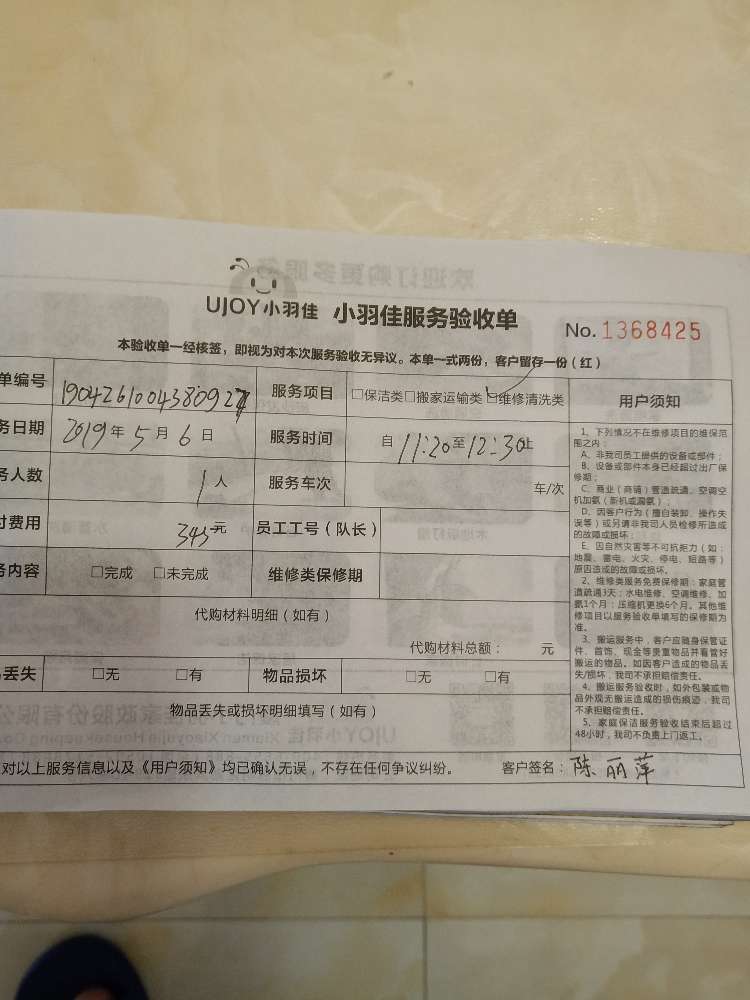 UJOY小羽佳 小羽佳服务验收单 No.1368425
本验收单一经核签，即视为对本次服务验收无异议。本单一式两份，客户留存一份（红）
单编号 服务项目 □保洁类□搬家运输类□维修清洗类 用户须知
务日期 2019年5月6日 服务时间 自11:20至12:30止
务人数 1人 服务车次 车/次
付费用 345元 员工工号（队长）
务内容 □完成 □未完成 维修类保修期
代购材料明细（如有）
代购材料总额： 元
丢失 □无 □有 物品损坏 □无 □有
物品丢失或损坏明细填写（如有）
1、下列情况不在维修项目的维保范
围之内：
A、非我司员工提供的设备或部件；
B、设备或部件本身已经超过出厂保
修期；
C、商业（商铺）管道疏通、空调空
机加氨（新机或漏氨）；
D、因客户行为（擅自装卸、操作失
误等）或另请非我司人员检修所造成
的故障或损坏；
E、因自然灾害等不可抗拒力（如：
地震、雷电、火灾、停电、短路等）
原因造成的故障或损坏。
2、维修类服务免费保修期：家庭管
道疏通3天；水电维修、空调维修、加
氨1个月；压缩机更换6个月。其他维
修项目以服务验收单填写的保修期为
准。
3、搬运服务中，客户应随身保管证
件、首饰、现金等贵重物品并看管好
搬运的物品。如因客户造成的物品丢
失/损坏，我司不承担赔偿责任。
4、搬运服务验收时，如外包装或物
品外观无搬运造成的损伤痕迹，我司
不承担赔偿责任。
5、家庭保洁服务验收结束后超过
48小时，我司不负责上门返工。
对以上服务信息以及《用户须知》均已确认无误，不存在任何争议纠纷。 客户签名：陈丽萍